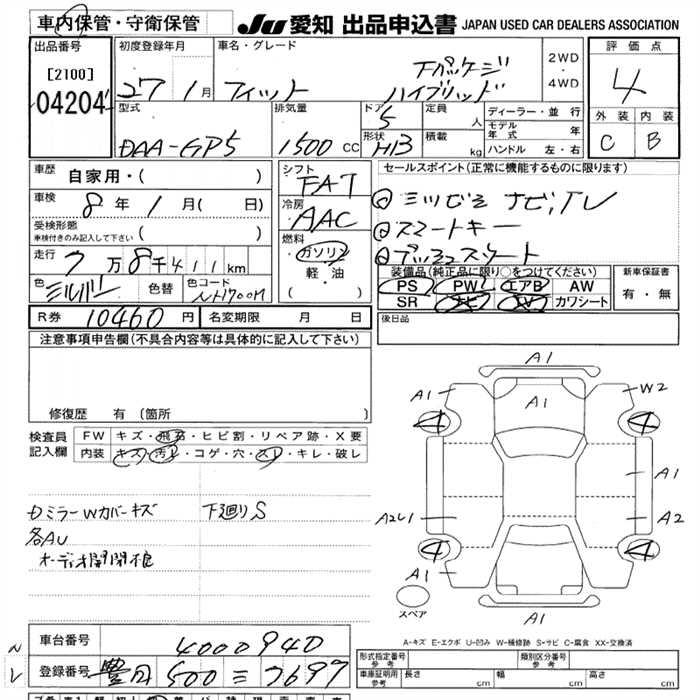 車内保管・守衛保管
JU 愛知 出品申込書 JAPAN USED CAR DEALERS ASSOCIATION
出品番号
[2100]
04204
初度登録年月
27 1月
車名・グレード
フィット
Fパッケージ
ハイブリッド
2WD
・
4WD
評価点
4
外装 内装
C B
型式
DAA-GP5
排気量
1500 CC
ドア
5
形状
HB
定員
人
積載
kg
ディーラー・並行
モデル年式 年
ハンドル 左・右
車歴 自家用・( )
車検 8年 1月( 日)
受検形態
車検付きのみ記入して下さい ( )
走行 7万8千411km
色 シルバー 色替 色コード NH700M
シフト
FAT
冷房
AAC
燃料
ガソリン
・
軽・油
( )
セールスポイント(正常に機能するものに限ります)
ナビ,TV
スマートキー
プッシュスタート
装備品(純正品に限り○をつけてください)
PS PW エアB AW
SR ナビ TV カワシート
新車保証書
有・無
R券 10460円 名変期限 月 日
後日品
注意事項申告欄(不具合内容等は具体的に記入して下さい)
修復歴 有(箇所 )
検査員記入欄
FW キズ・飛石・ヒビ割・リペア跡・X要
内装 キズ・汚レ・コゲ・穴・スレ・キレ・破レ
DミラーWカバーキズ 下廻りS
各AU
オーディオ開閉
A1
A1
A1
W2
4
4
A1
A2U1
A2
4
4
A1
A1
スペア
A-キズ E-エクボ U-凹み W-補修跡 S-サビ C-腐食 XX-交換済
車台番号 4000940
登録番号 豊田 500 ミ 7697
形式指定番号
参考
類別区分番号
参考
車庫証明用
参考
長さ cm 幅 cm 高さ cm